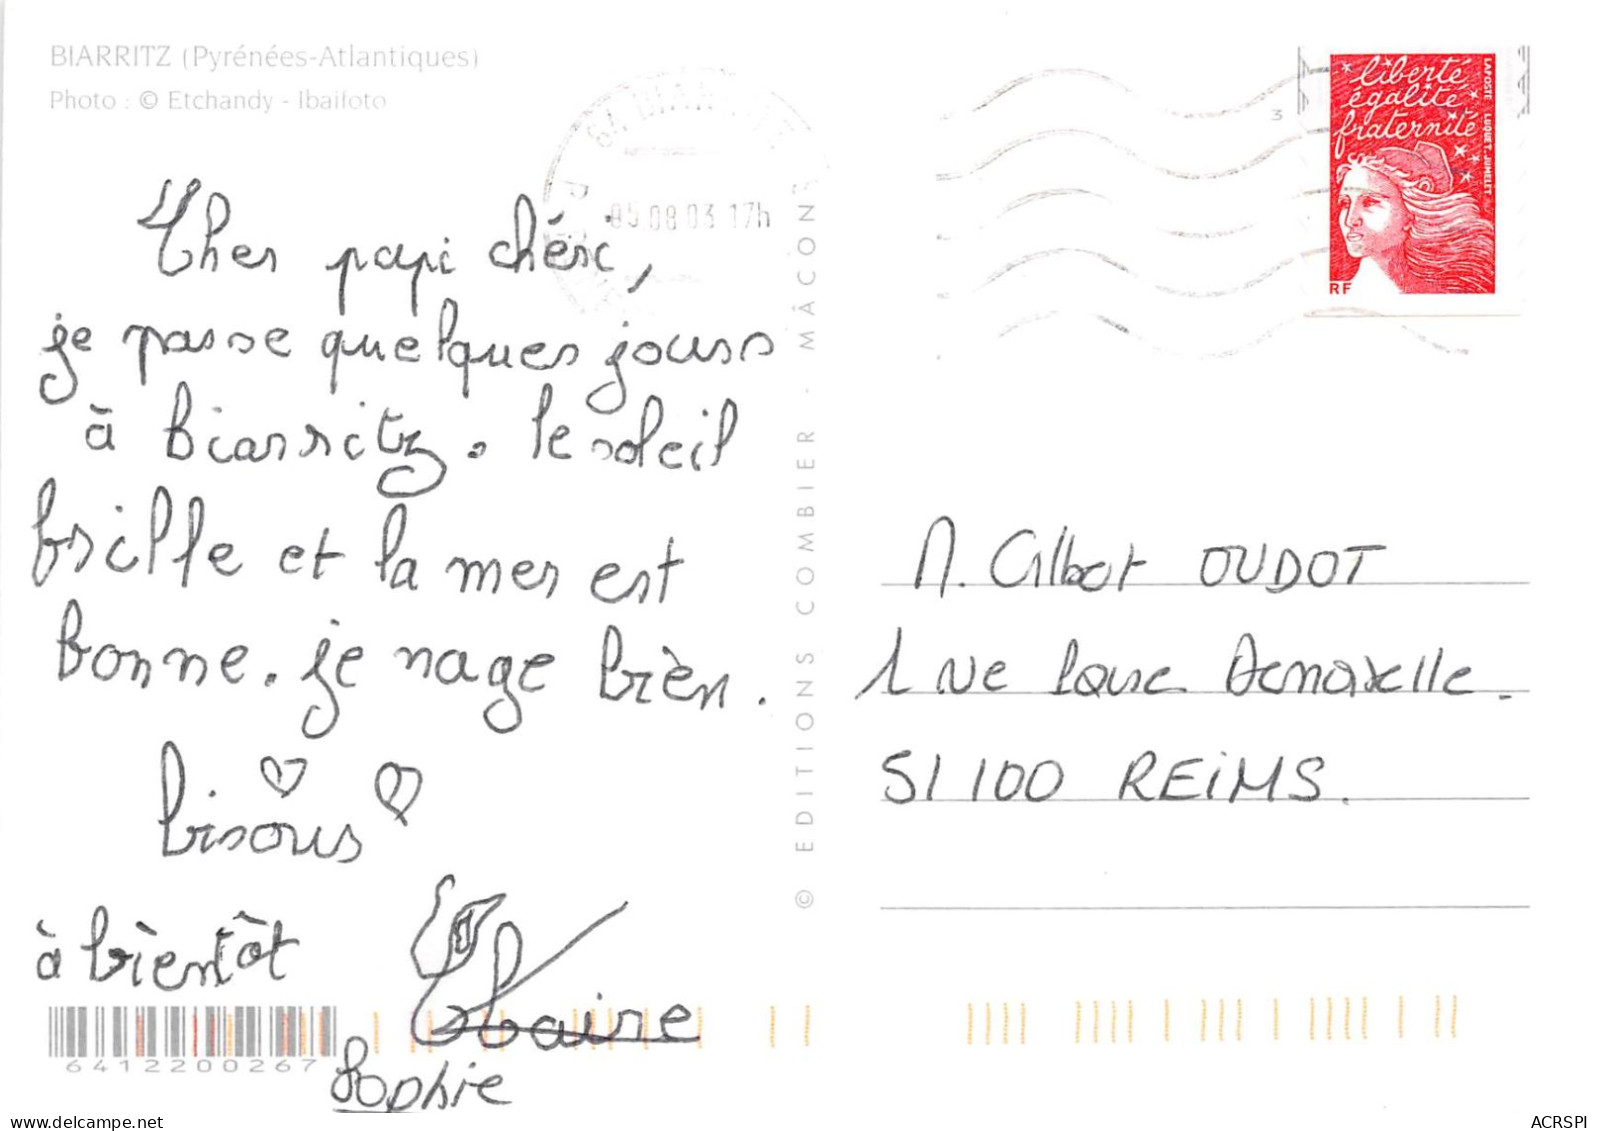 BIARRITZ (Pyrénées-Atlantiques)
Photo : © Etchandy - Ibaifoto
Cher papi chéri,
je passe quelques jours
à biarritz. le soleil
brille et la mer est
bonne. je nage bièn.
bisous
à bièntôt
Claire
Sophie
6412200267
© EDITIONS COMBIER - MÂCON
05.08.03 17h
3
liberté
égalité
fraternité
LAPOSTE LUQUET.JUMELET
RF
M. Gilbert OUDOT
1 rue
51100 REiMS.
ACRSPI
delcampe.net